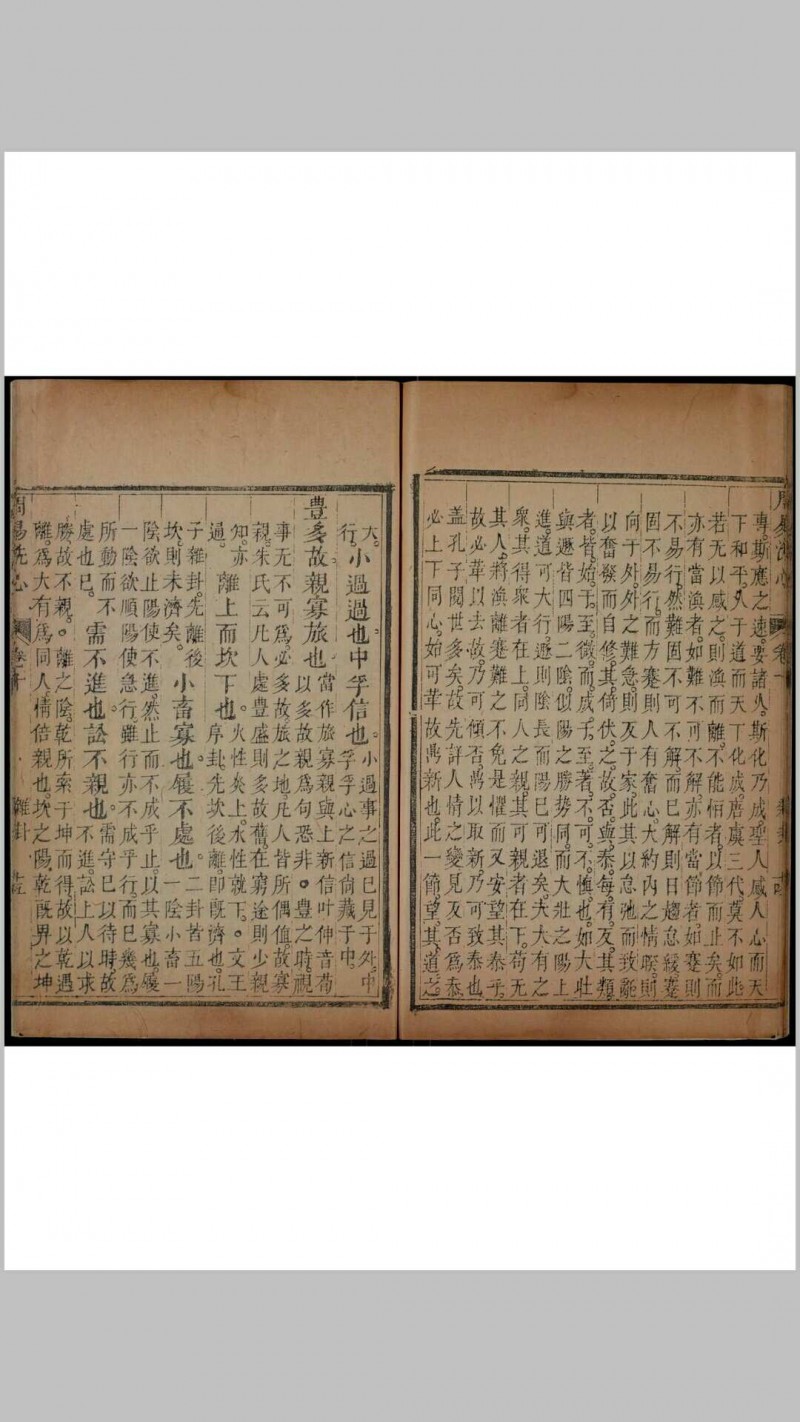 專斯應之速要諸人斯化乃成聖人感人心而天
下和平久于道而天下化成唐虞三代莫不如此
若無以感之則渙而離不能恒者以節而止矣而
亦有當渙者如難不可不解亦有當節者如蹇則
不易行然難固不可不解而已解則日趨怠緩蹇
固不易行而方蹇則人有奮心大約內之情暌則
向于外外之難急則反于家此其以怠弛而致離
以奮發而自修其倚伏之故否與泰每有反其類
者皆始于至微而成于至著不可不慎也如大壯
與遯皆四陽二陰似陽之勝勢同而大壯之陽上
進道可大行遯則陰長而陽已可退矣大大有之
衆其得衆者在上同人之親其可親者在下苟無
其人將渙離蹇難之不免是懼而又安望其泰乎
故必革以去故乃可傾否鼎以取新乃可致泰也
蓋孔子閱世多矣故先詳人情之變見及否爲泰
必上下同心如可革故鼎新也此一節望其道之
大小過過也中孚信也小過事之過已見于外中
行孚孚心之信尚藏于中
豐多故親寡旅也當作旅寡親與上新信叶伸音苟
以多故親爲句恐非豐之時視
事无不可爲必多故旅之地凡人皆所偶值故寡
親朱氏云凡人處豐盛則多故舊在窮途則少親
知亦離上而坎下也火性炎上水性就下文王
過序卦先坎後離即既濟也孔
子雜卦先離後
坎則未濟矣小畜寡也履不處也二卦皆五陽
一陰小畜一
陰欲止陽使不進然止而不成乎止以其寡也履
一陰欲順陽使急行雖行亦不成乎行而已幾爲
所動而不
處也已需不進也訟不親也需守已以待時故
不進訟上人以求
勝故不親離之陰乾所索于坤而得故以乾遇
離爲大有爲同人情倍親也坎之陽乾既畀之坤
周易洗心 卷十 雜卦